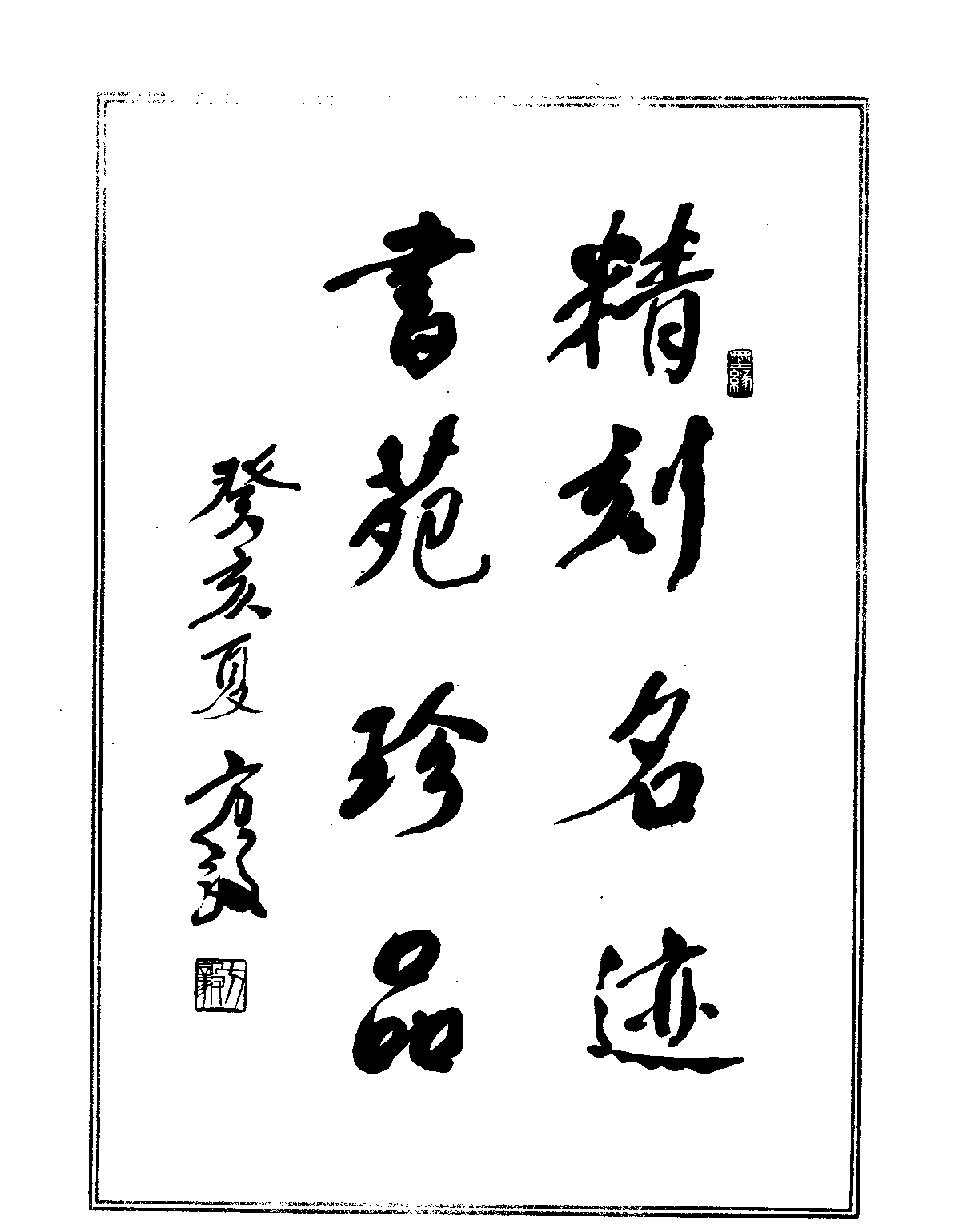 精刻名迹
書苑珍品
癸亥夏 方毅
方毅